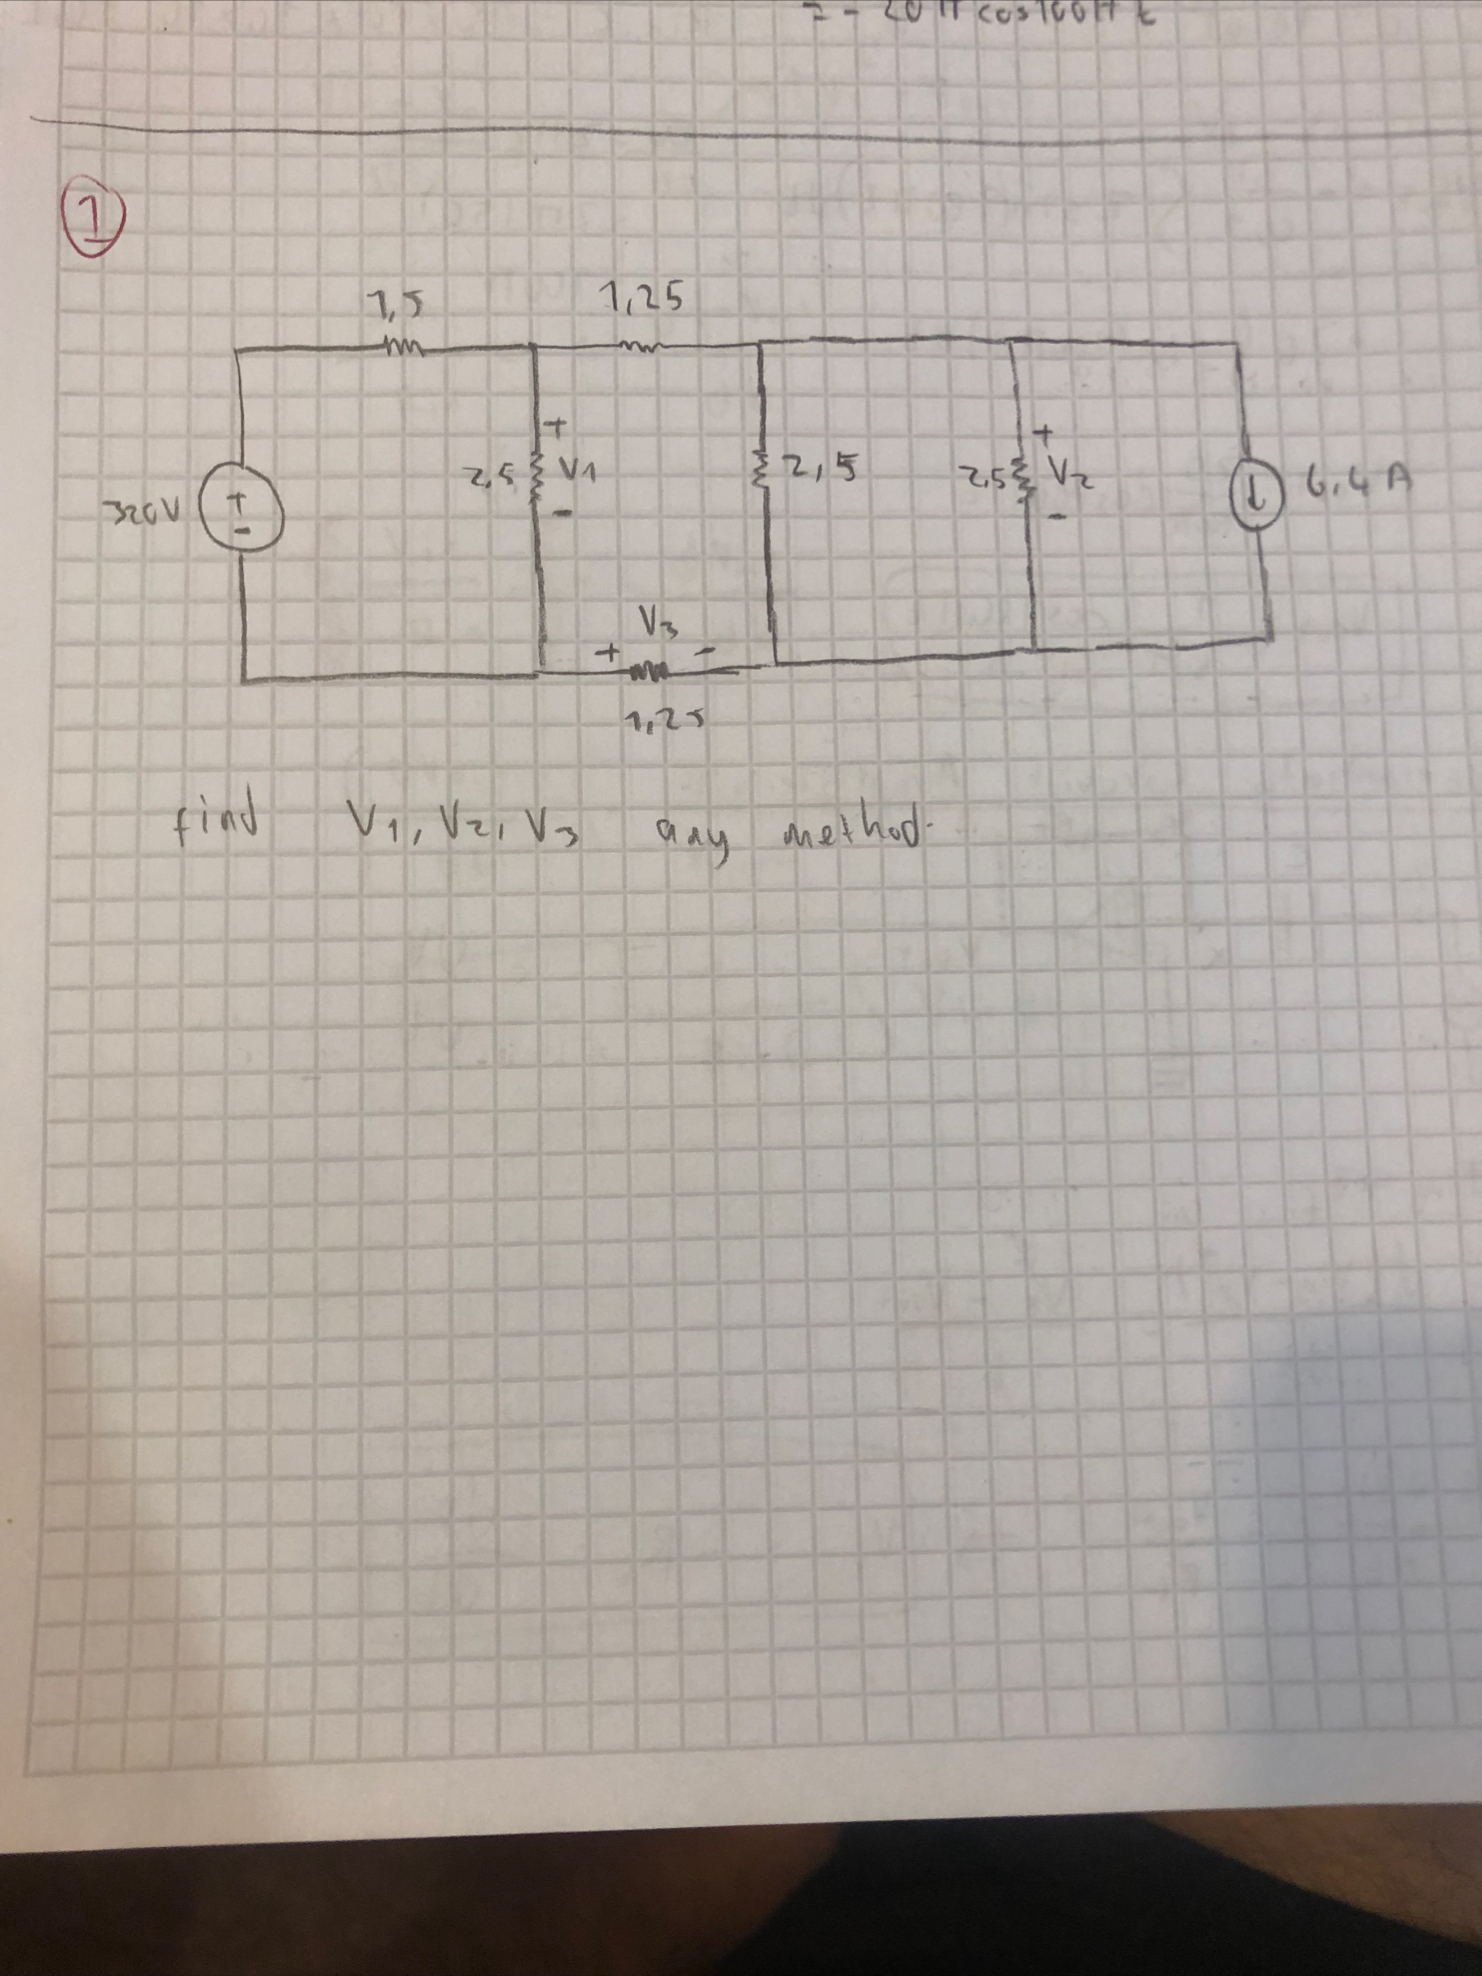 = - 20 π cos100π t
1
1,5 1,25
+ +
2,5 V1 2,5 2,5 V2 6.4 A
320V + - - -
V3
+ -
1,25
find V1, V2, V3 any method.